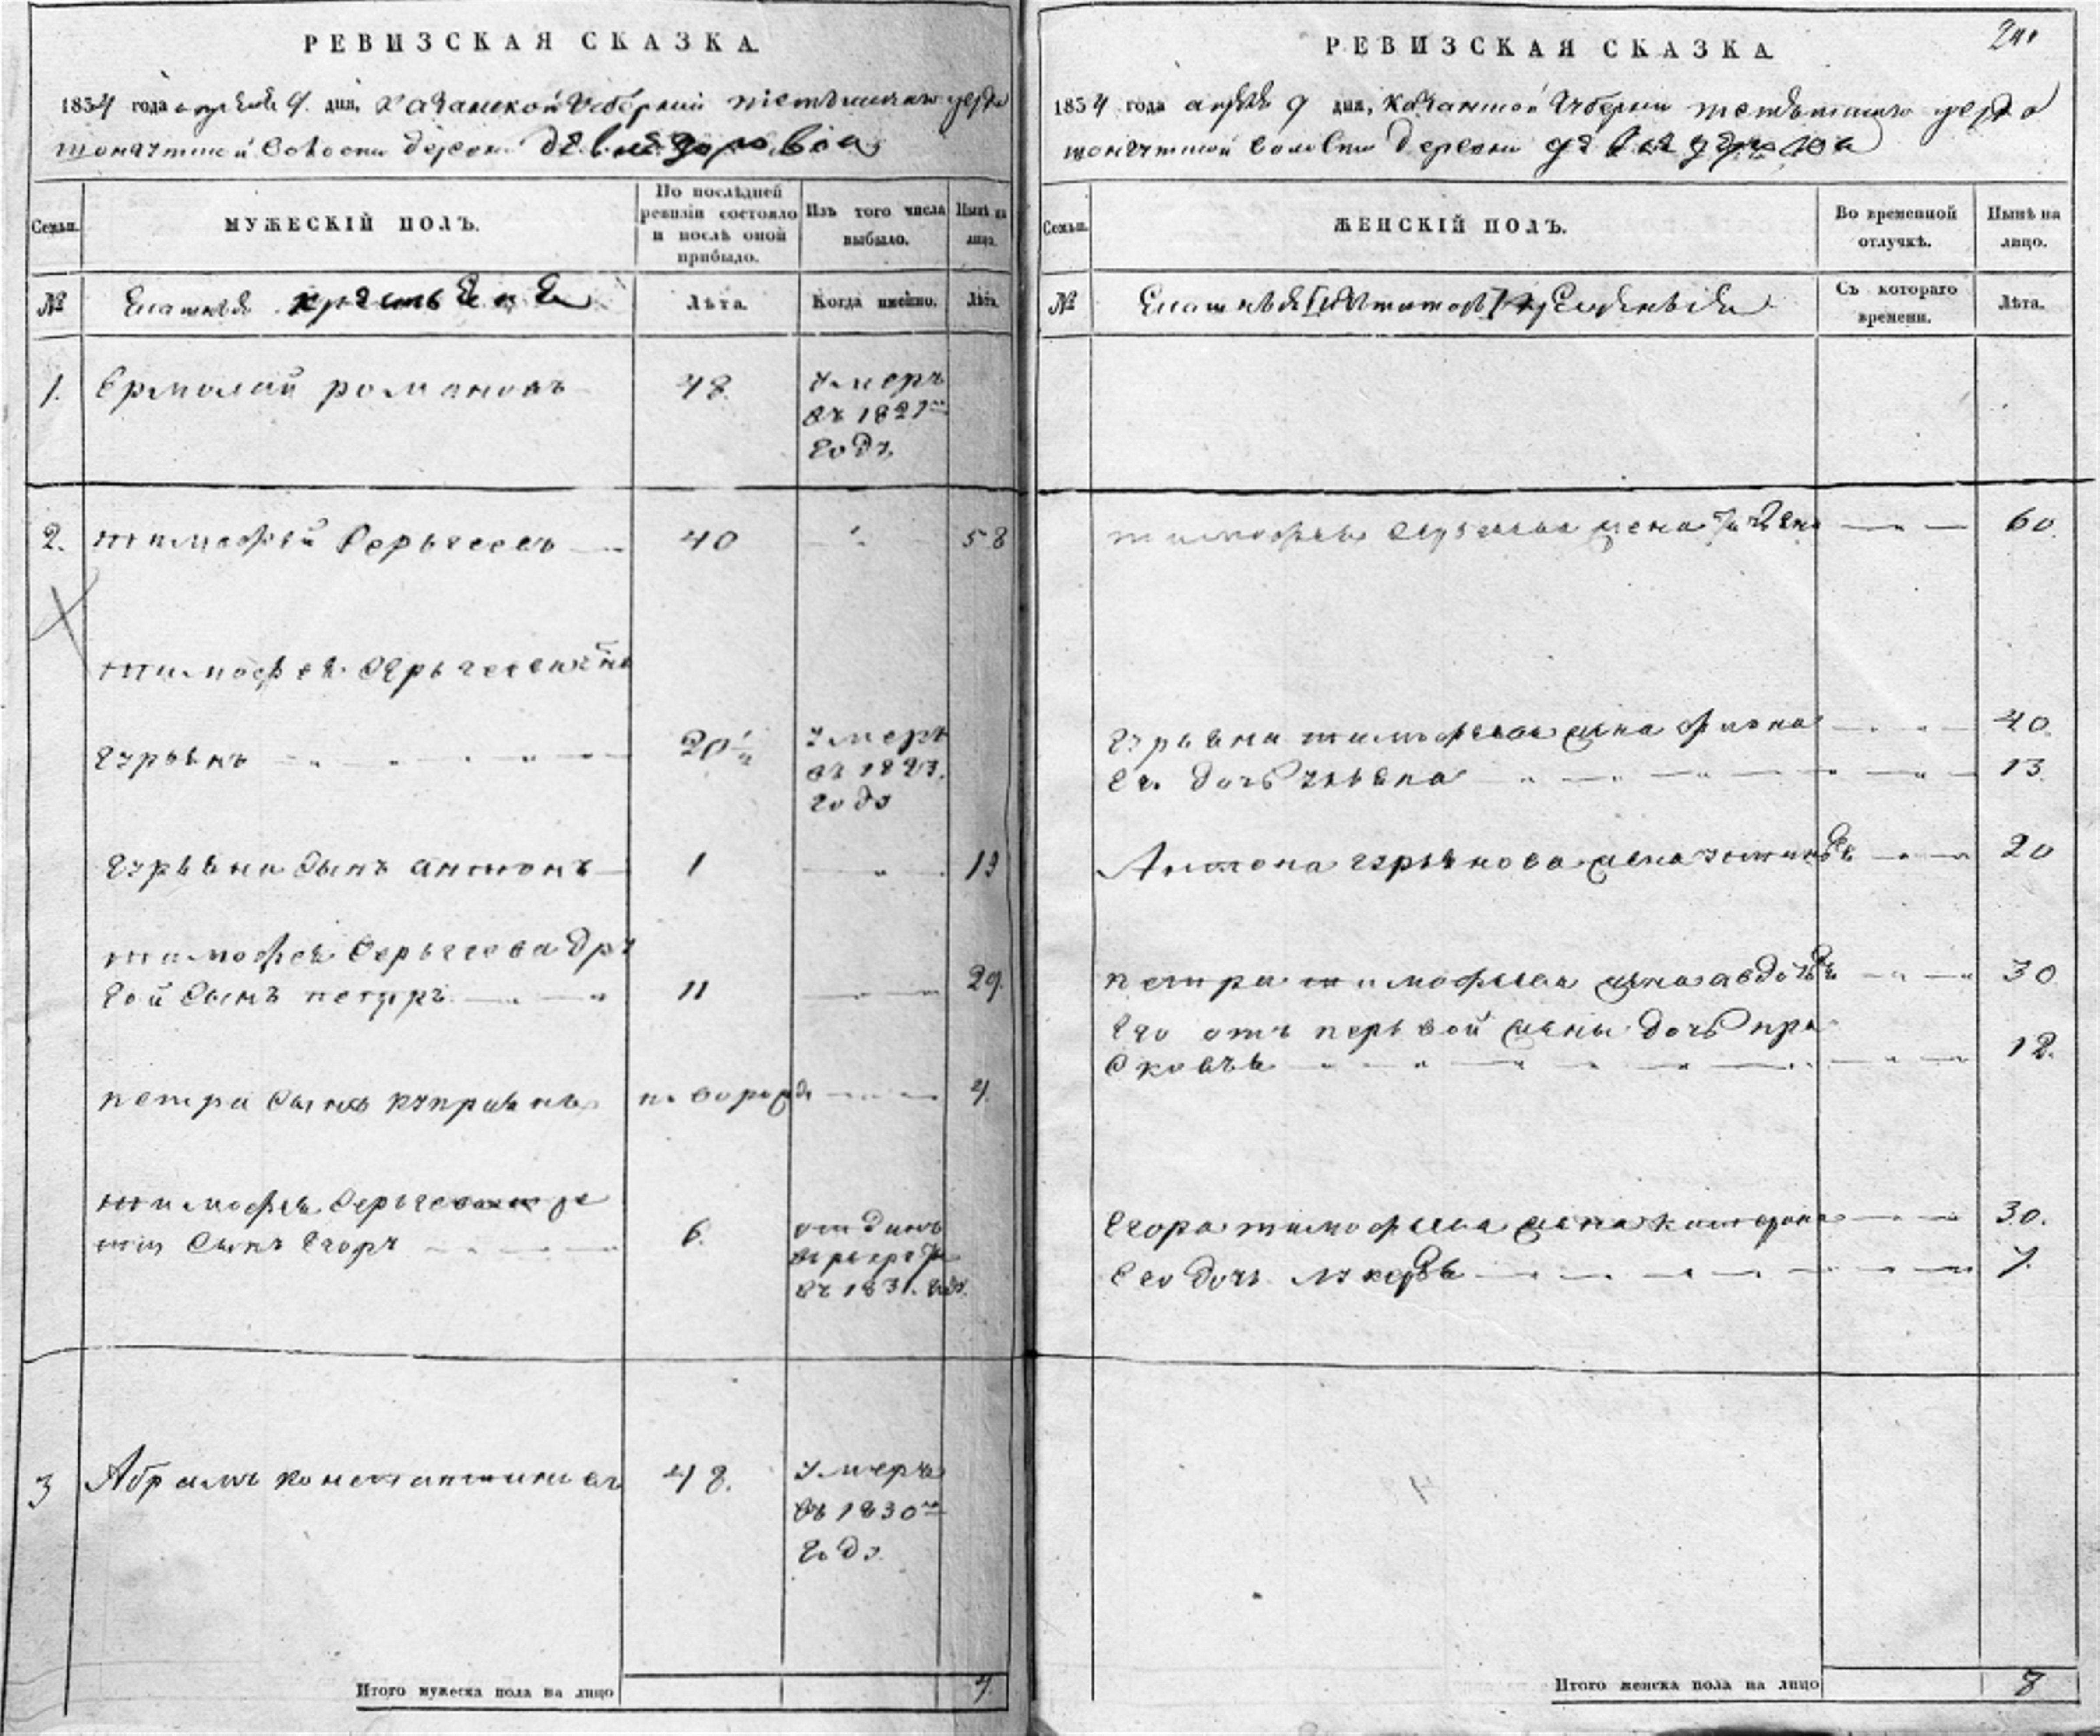 РЕВИЗСКАЯ СКАЗКА.
1834 года апреля 9. дня, Казанской Губернии тетюшскаго уезда
волости деревни
Семьи.
МУЖЕСКІЙ ПОЛЪ.
По послѣдней ревизіи состояло и послѣ оной прибыло.
Изъ того числа выбыло.
Нынѣ на лицо.
№
крестьяне
Лѣта.
Когда именно.
Лѣта.
1. Ермолай романовъ 48. умеръ
въ 1821мъ
годъ
2. тимофей Сергеевъ 40 58
тимофея Сергеева сынъ
гурьянъ 20½ умеръ
въ 1827.
году
гурьяна сынъ антонъ 1 19
тимофея Сергеева дру
гой сынъ петръ 11 29.
петра сынъ куприянъ новорожд 4.
тимофея Сергеева тре
тий сынъ Егоръ 6. отданъ
въ рекруты
въ 1831. году.
3 Абрамъ константиновъ 48. умеръ
въ 1830мъ
году
Итого мужеска пола на лицо 4.
РЕВИЗСКАЯ СКАЗКА.
1834 года апреля 9 дня, Казанской Губернии тетюшскаго уезда
волости деревни
Семьи.
ЖЕНСКІЙ ПОЛЪ.
Во временной отлучкѣ.
Нынѣ на лицо.
№
Съ котораго времени.
Лѣта.
тимофея Сергеева жена 60.
гурьяна тимофеева жена 40.
Ея дочь ульяна 13.
Антона гурьянова жена устинья 20
петра тимофеева жена авдотья 30
Его отъ первой жены дочь пра
сковья 12.
Егора тимофеева жена катерина 30.
Его дочь лукерья 7.
Итого женска пола на лицо 8